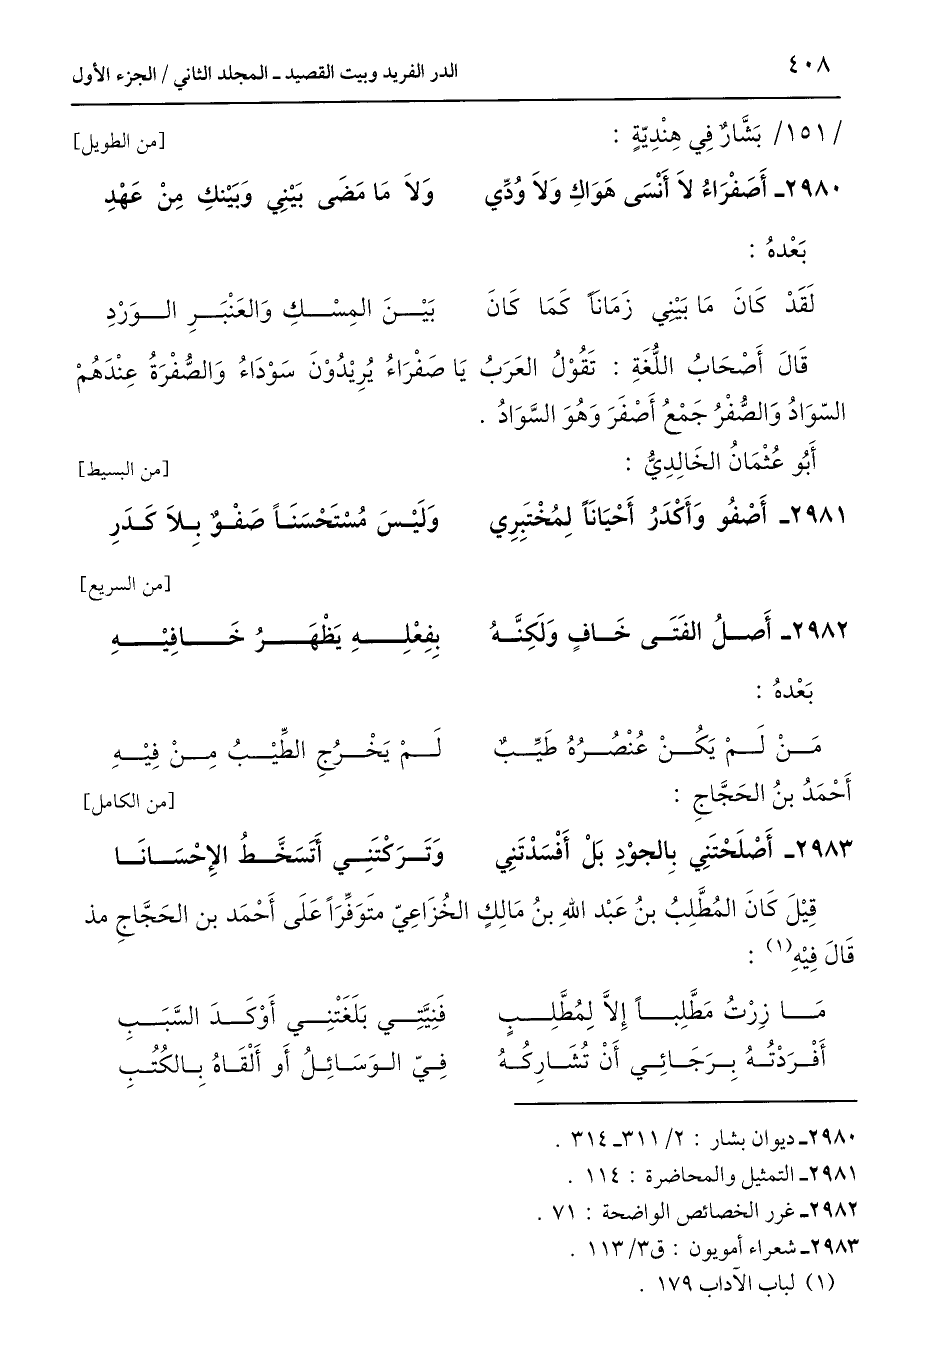 ٤٠٨
الدر الفريد وبيت القصيد ـ المجلد الثاني / الجزء الأول
/ ١٥١/ بَشَّارٌ فِي هِنْدِيّةٍ : [من الطويل]
٢٩٨٠ـ أَصَفْرَاءُ لاَ أَنْسَى هَوَاكِ وَلاَ وُدِّي وَلاَ مَا مَضَى بَيْنِي وَبَيْنكِ مِنْ عَهْدِ
بَعْدهُ :
لَقَدْ كَانَ مَا بَيْنِي زَمَاناً كَمَا كَانَ بَيْـنَ المِسْـكِ وَالعَنْبَـرِ الـوَرْدِ
قَالَ أَصْحَابُ اللُّغَةِ : تَقُوْلُ العَرَبُ يَا صَفْرَاءُ يُرِيْدُوْنَ سَوْدَاءُ وَالصُّفْرَةُ عِنْدَهُمْ
السّوَادُ وَالصُّفْرُ جَمْعُ أَصْفَرَ وَهُوَ السَّوَادُ .
أَبُو عُثْمَانُ الخَالِدِيُّ : [من البسيط]
٢٩٨١ـ أَصْفُو وَأَكْدَرُ أَحْيَاناً لِمُخْتَبِرِي وَلَيْسَ مُسْتَحْسَنَاً صَفْوٌ بِلاَ كَدَرِ
[من السريع]
٢٩٨٢ـ أَصـلُ الفَتَـى خَـافٍ وَلَكِنَّـهُ بِفِعْلِـهِ يَظْهَـرُ خَـافِيْـهِ
بَعْدهُ :
مَـنْ لَـمْ يَكُـنْ عُنْصُـرُهُ طَيِّـبٌ لَـمْ يَخْـرُجِ الطِّيْـبُ مِـنْ فِيْـهِ
أَحْمَدُ بنُ الحَجَّاجِ : [من الكامل]
٢٩٨٣ـ أَصْلَحْتَنِي بِالجوْدِ بَلْ أَفْسَدْتَنِي وَتَـرَكْتَنِـي أَتَسَخَّـطُ الإِحْسَـانَـا
قِيْلَ كَانَ المُطَّلِبُ بنُ عَبْد اللهِ بنُ مَالِكٍ الخُزَاعِيّ مَتَوَفِّرَاً عَلَى أَحْمَد بن الحَجَّاجِ مذ
قَالَ فِيْهِ(١) :
مَـا زِرْتُ مَطَّلِبـاً إِلاَّ لِمُطَّلِـبٍ فَنِيَّتِـي بَلَغَتْنِـي أَوْكَـدَ السَّبَـبِ
أَفْـرَدْتُـهُ بِـرَجَـائِـي أَنْ تُشَـارِكُـهُ فِـيّ الـوَسَـائِـلُ أَو أَلْقَـاهُ بِـالكُتُـبِ
٢٩٨٠ـ ديوان بشار : ٢/ ٣١١ـ ٣١٤ .
٢٩٨١ـ التمثيل والمحاضرة : ١١٤ .
٢٩٨٢ـ غرر الخصائص الواضحة : ٧١ .
٢٩٨٣ـ شعراء أمويون : ق٣/ ١١٣ .
(١) لباب الآداب ١٧٩ .